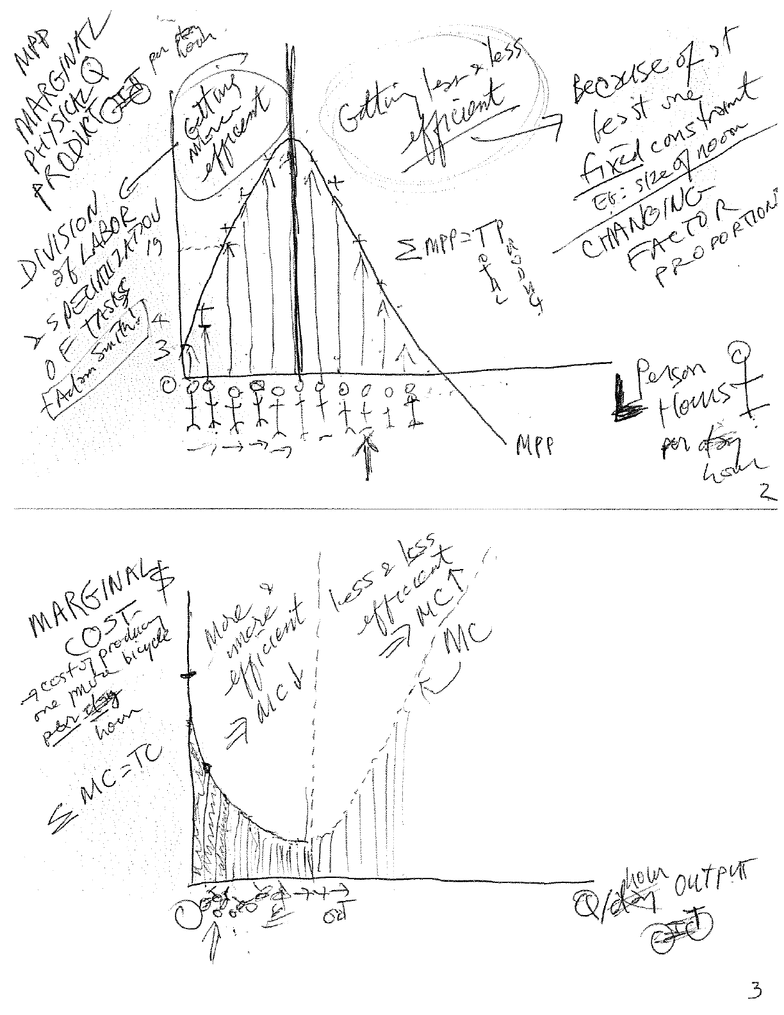 MPP
MARGINAL
PHYSICAL
PRODUCT
Q
per day
hour
Getting
more
efficient
Getting less & less
efficient
Because of at
least one
fixed constraint
Eg: size of room
CHANGING
FACTOR
PROPORTIONS
DIVISION
of LABOR
> SPECIALIZATION
OF TASKS
(Adam Smith!)
19
4
3
0
Σ MPP = TP
OTAL
RODUCT
MPP
L Person
Hours
per day
hour
2
MARGINAL
COST
→ cost of producing
one more bicycle
per day
hour
Σ MC = TC
$
More &
more
efficient
⇒ MC↓
Less & less
efficient
⇒ MC↑
MC
0
Q/day
hour
OUTPUT
3